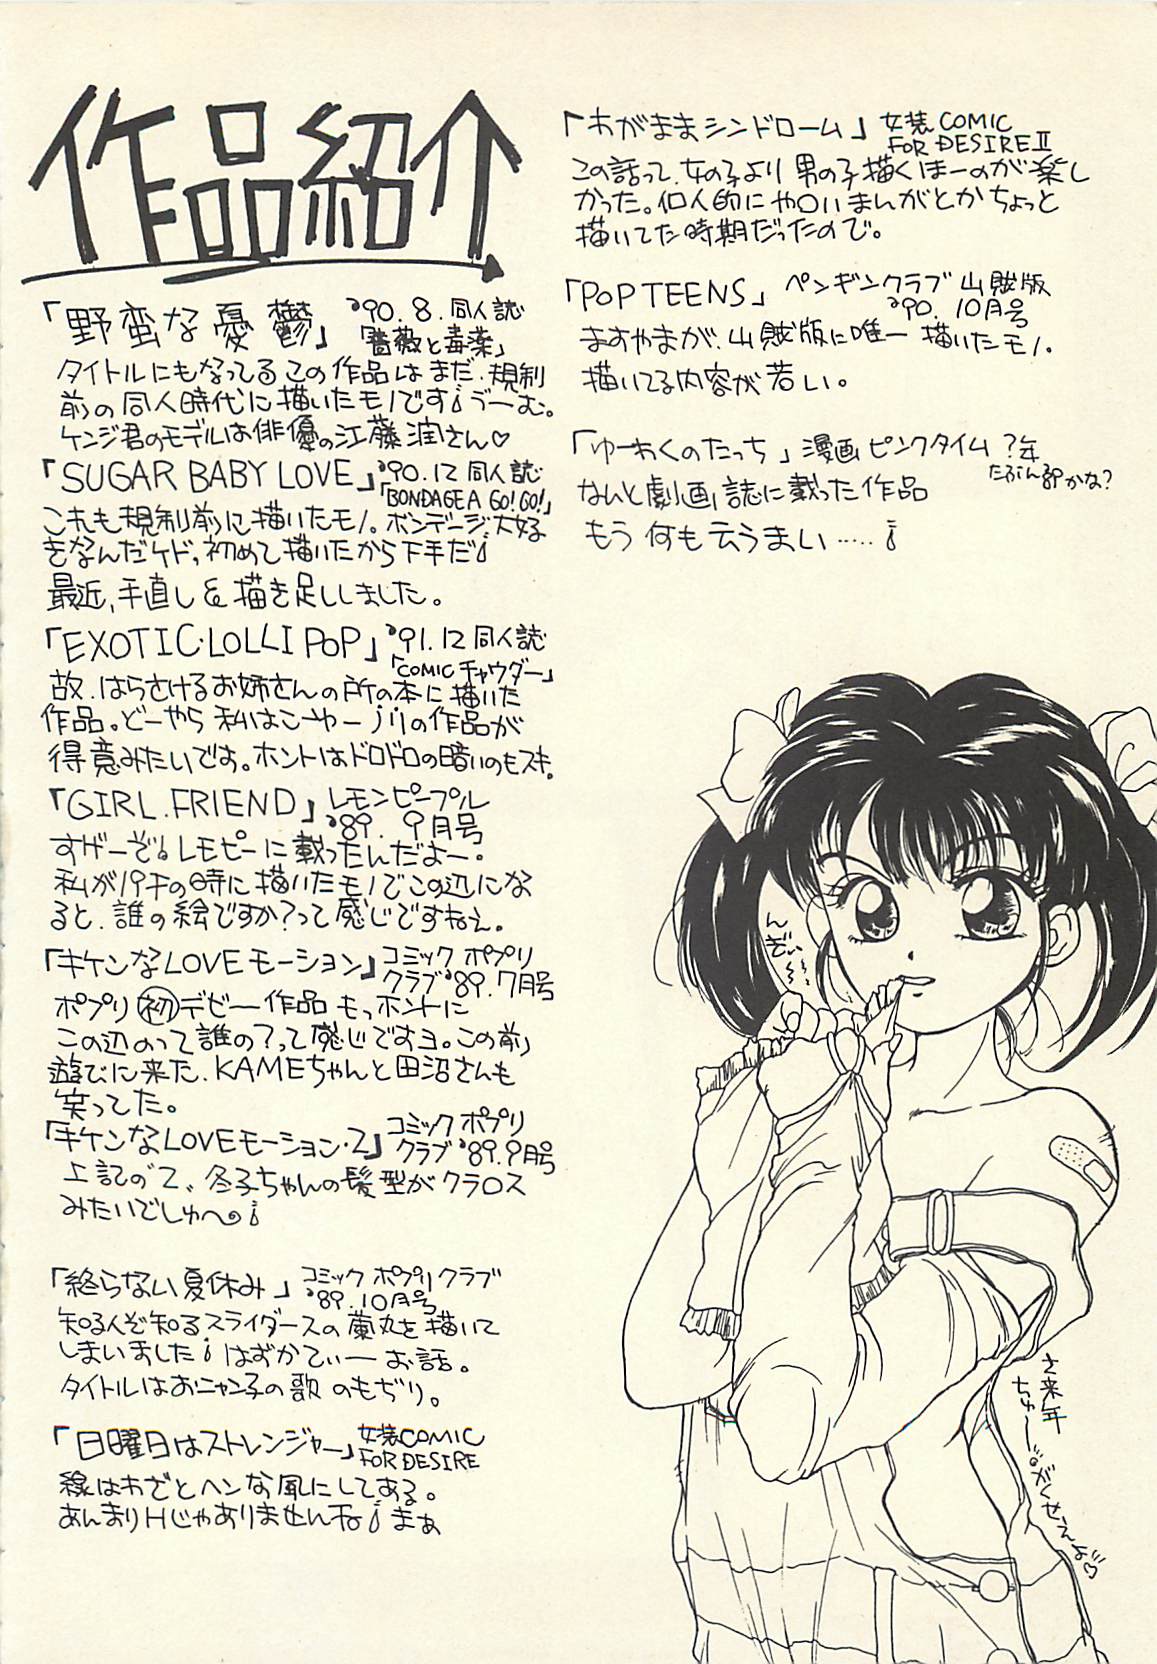 作品紹介
「野蛮な憂鬱」'90.8.同人誌
「薔薇と毒薬」
タイトルにもなってるこの作品はまだ、規制
前の同人時代に描いたモノです!うーむ。
ケンジ君のモデルは俳優の江藤潤さん♡
「SUGAR BABY LOVE」'90.12 同人誌
「BONDAGE A GO!GO!」
これも規制前に描いたモノ。ボンデージ大好
きなんだケドっ、初めて描いたから下手だ!
最近、手直し&描き足ししました。
「EXOTIC・LOLLIPOP」'91.12 同人誌
「COMICチャウダー」
故.はらさけるお姉さんの所の本に描いた
作品。どーやら私はこーゆーノリの作品が
得意みたいです。ホントはドロドロの暗いのもスキ。
「GIRL.FRIEND」レモンピープル
'89.9月号
すげーぞ!レモピーに載ったんだよー。
私がパチの時に描いたモノでこの辺にな
ると、誰の絵ですか?って感じですねえ。
「キケンなLOVEモーション」コミック ポプリ
クラブ'89.7月号
ポプリ初デビー作品 もっホントに
この辺のって誰の?って感じですヨ。この前
遊びに来た、KAMEちゃんと田沼さんも
笑ってた。
「キケンなLOVEモーション・2」コミック ポプリ
クラブ'89.9月号
上記の2、冬子ちゃんの髪型がクラロス
みたいでしゅへ!
「終らない夏休み」コミック ポプリクラブ
'89.10月号
知る人ぞ知るスライダースの蘭丸を描いて
しまいました!はずかてぃーお話。
タイトルはおニャン子の歌のもぢり。
「日曜日はストレンジャー」女装COMIC
FOR DESIRE
線はわざとヘンな風にしてある。
あんまりHじゃありませんね!まぁ
「わがままシンドローム」女装COMIC
FOR DESIRE II
この話って、女の子より男の子描くほーのが楽し
かった。個人的にや○いまんがとかちょっと
描いてた時期だったので。
「POP TEENS」ペンギンクラブ山賊版
'90.10月号
ますやまが、山賊版に唯一描いたモノ。
描いてる内容が若い。
「ゆーわくのたっち」漫画ピンクタイム ?年
たぶん89かな?
なんと劇画誌に載った作品
もう何も云うまい……!
んぎぃ〜〜
さ来年
ちゅー
がくせえよ♡